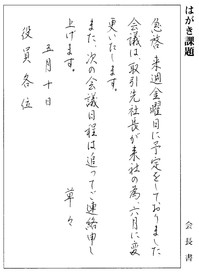 はがき課題
急啓 来週金曜日に予定をしておりました
会議は取引先社長が来社の為、六月に変
更いたします。
また、次の会議日程は追ってご連絡申し
上げます。
草々
五月十日
役員各位
会長書